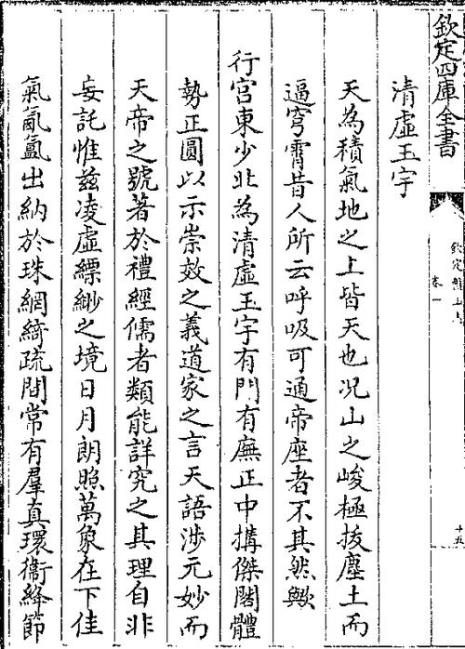 欽定四庫全書
欽定盤山志
卷一
十五
清虛玉宇
天為積氣地之上皆天也況山之峻極拔塵土而
逼穹霄昔人所云呼吸可通帝座者不其然歟
行宮東少北為清虛玉宇有門有廡正中搆傑閣體
勢正圓以示崇效之義道家之言天語涉元妙而
天帝之號著於禮經儒者類能詳究之其理自非
妄託惟兹凌虛縹緲之境日月朗照萬象在下佳
氣氤氳出納於珠網綺疏間常有羣真環衞絳節